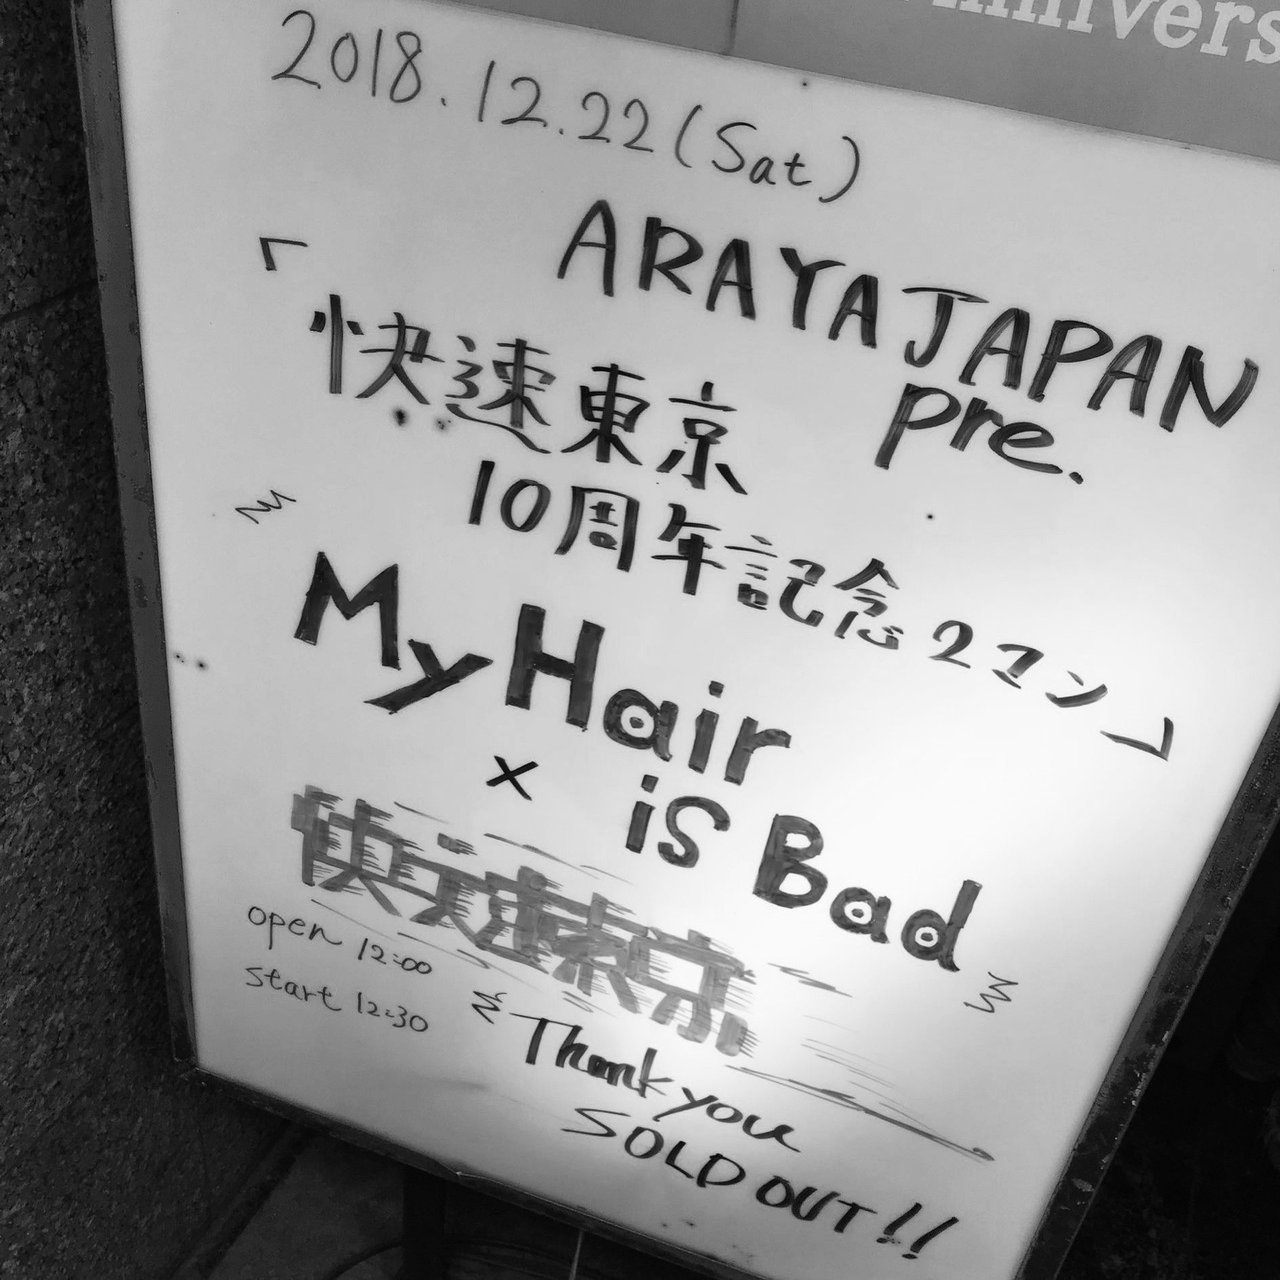 nnivers
2018.12.22(Sat)
ARAYAJAPAN
pre.
「快速東京
10周年記念2マン」
My Hair
is Bad
×
快速東京
open 12:00
start 12:30
Thank you
SOLD OUT!!